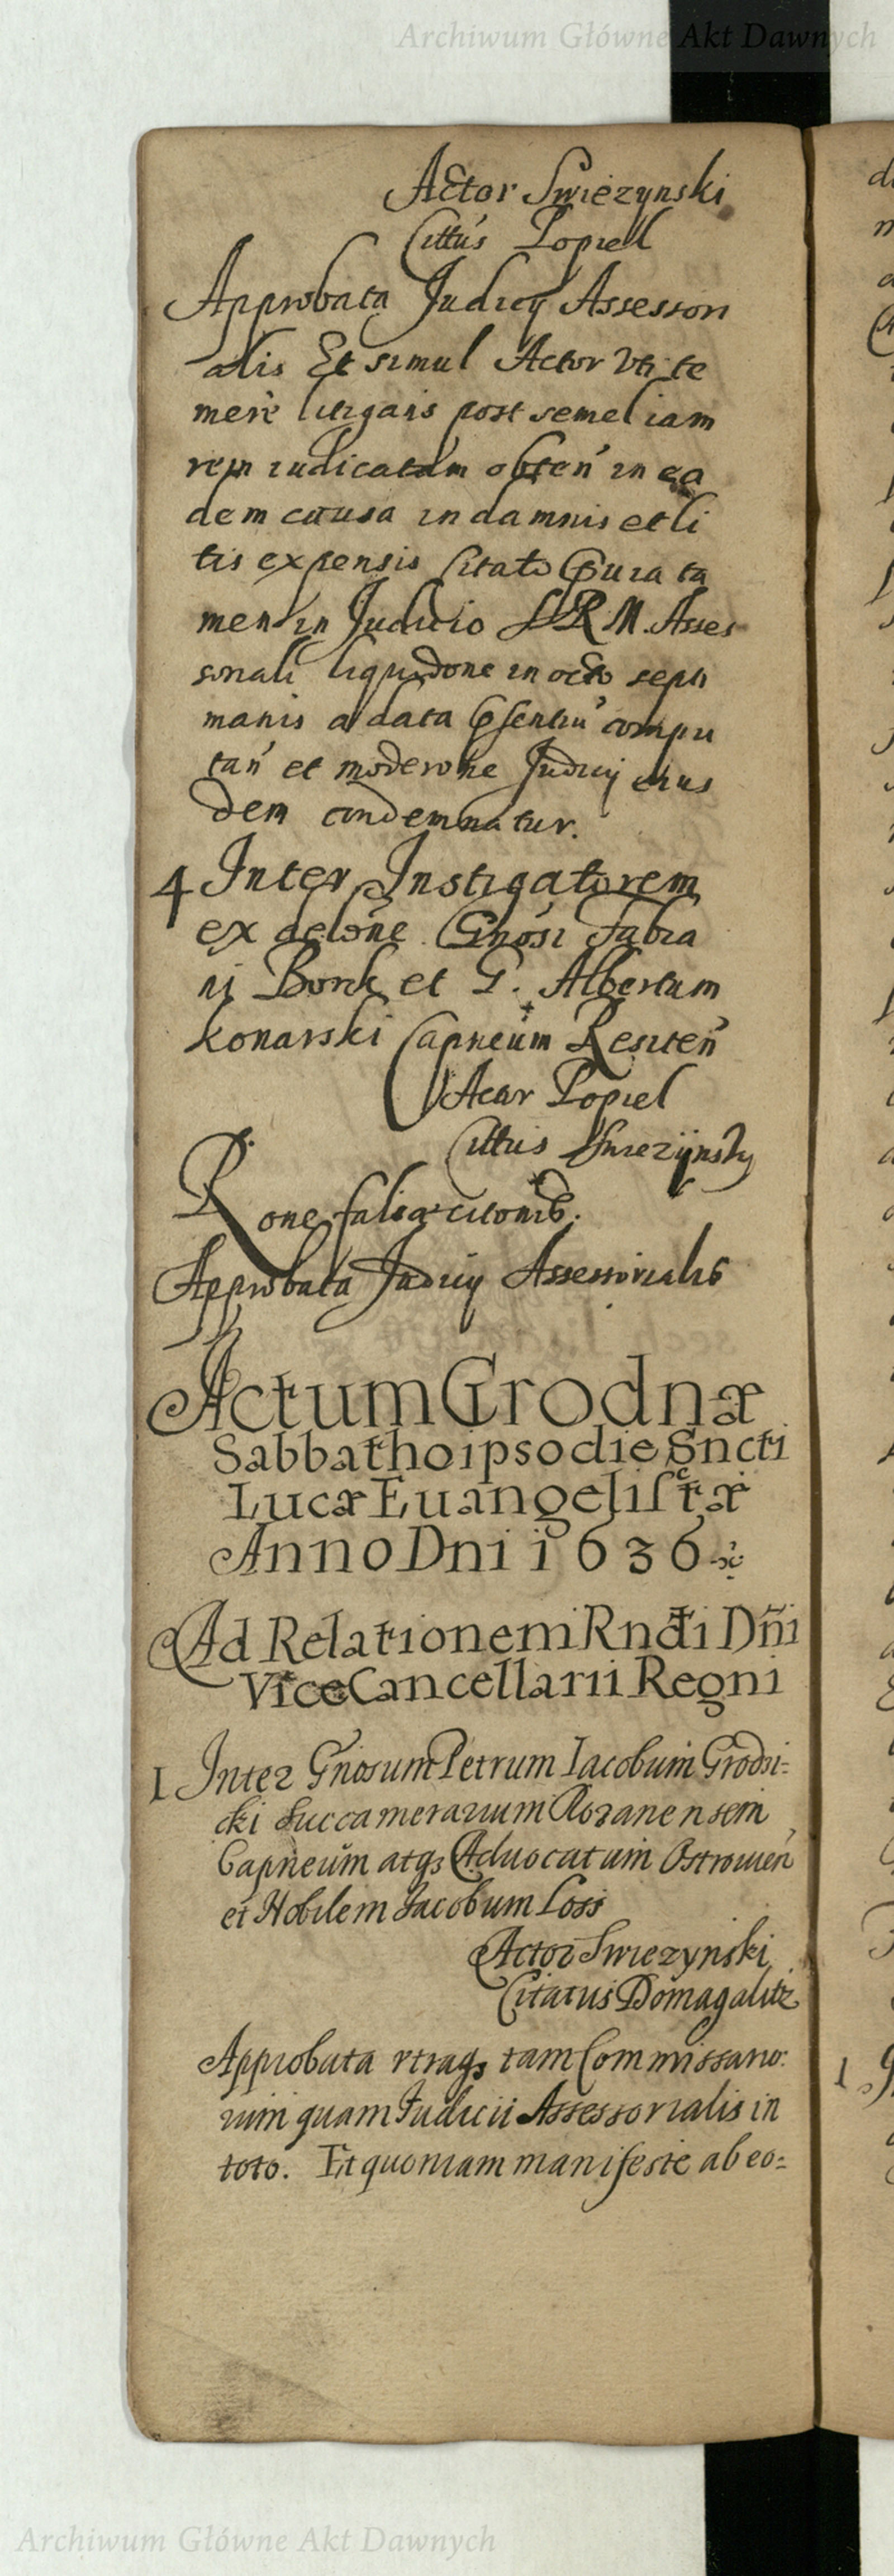 Archiwum Główne Akt Dawnych
Actor Swiezynski
Citt9us Popiel
Approbata Judicij Assessori
alis Et simul Actor Vti te
mere litigans post semel iam
rem iudicatam obten̄ in ea
dem causa in damnis et li
tis expensis Citato
men in Judicio S R M. Asses
soriali liquidōne in octo septi
manis a data compu
tan̄ et moderōne Judicij eius
dem condemnatur.
4 Inter Instigatorem
ex delōne Gn̄osi Fabia
ni Borek et G. Albertum
Konarski Capn̄eum Resiten̄
Actor Popiel
Cittus Swiezijnsky
Rōne
Approbata Judicij Assessorialis
Actum Grodnæ
Sabbatho ipso die Sncti
Lucæ Euangelistæ
Anno Dni 1636
Ad Relationem Rndi Dn̄i
ViceCancellarii Regni
1 Inter Gnosum Petrum Iacobum Grodzi=
cki Succamerarium Rozanensem
Capn̄eum atqȝ Aduocatum Ostrouien̄
et Nobilem Jacobum Loss
Actor Swiezynski
Citatus Domagalitz
Approbata vtraqȝ tam Commissario:
rum quam Judicii Assessorialis in
toto. Et quoniam manifeste ab eo=
1
Archiwum Główne Akt Dawnych